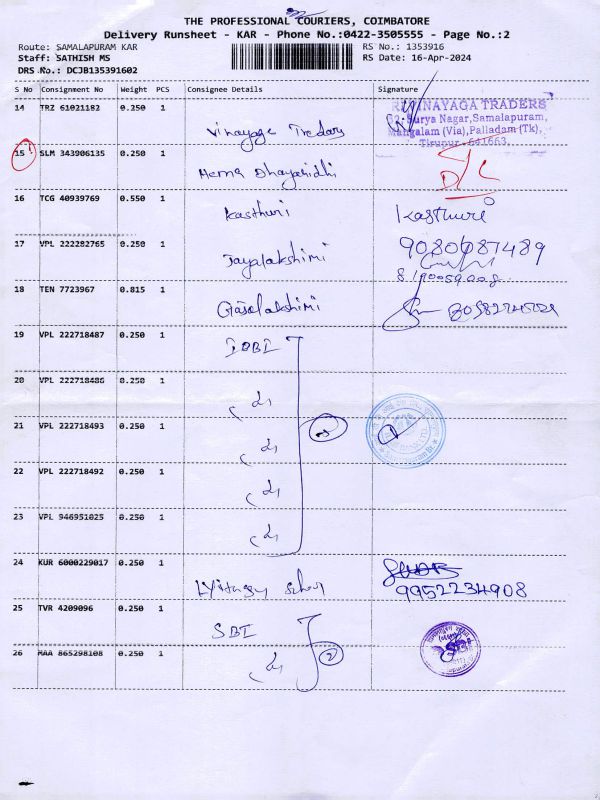 THE PROFESSIONAL COURIERS, COIMBATORE
Delivery Runsheet - KAR - Phone No.:0422-3505555 - Page No.:2
Route: SAMALAPURAM KAR
RS No.: 1353916
Staff: SATHISH MS
RS Date: 16-Apr-2024
DRS No.: DCJB135391602
S No Consignment No Weight PCS Consignee Details Signature
14 TRZ 61021182 0.250 1 Vinayaga Traders
VINAYAGA TRADERS
Surya Nagar,Samalapuram,
Mangalam (Via),Palladam (Tk),
Tirupur - 641663.
15 SLM 343906135 0.250 1 Hema Dhayanidhi D/L
16 TCG 40939769 0.550 1 Kasthuri Kasthuri
17 VPL 222282765 0.250 1 Jayalakshimi 9080687489
18 TEN 7723967 0.815 1
19 VPL 222718487 0.250 1 IDBI
20 VPL 222718486 0.250 1
21 VPL 222718493 0.250 1
22 VPL 222718492 0.250 1
23 VPL 946951025 0.250 1
24 KUR 6000229017 0.250 1 School 9952234908
25 TVR 4209096 0.250 1 SBI
26 MAA 865298108 0.250 1
2